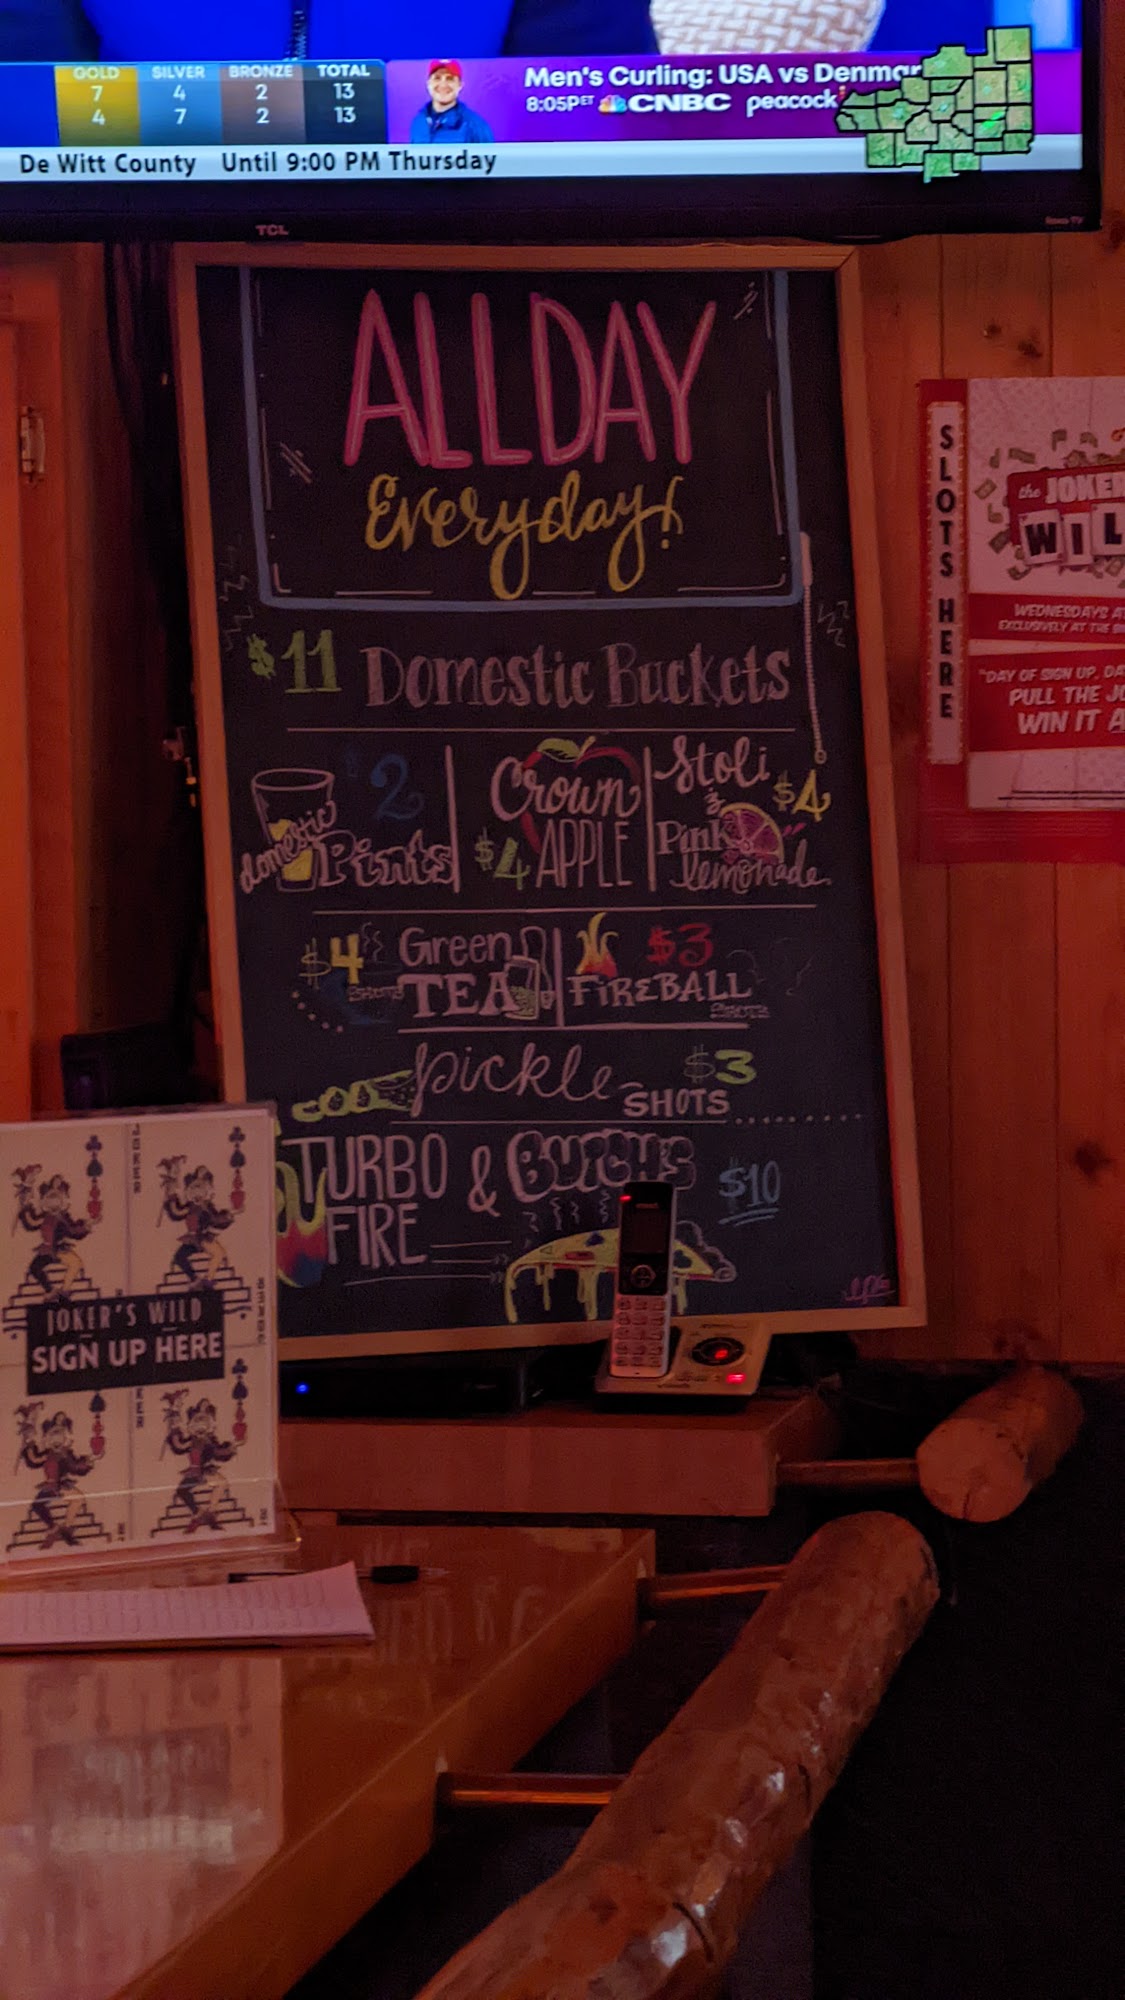 GOLD SILVER BRONZE TOTAL
7 4 2 13
4 7 2 13
Men's Curling: USA vs Denmar
8:05P ET CNBC peacock
De Witt County Until 9:00 PM Thursday
TCL
Roku TV
ALLDAY
Everyday!
$11 Domestic Buckets
$2
domestic Pints
Crown
$4 APPLE
Stoli $4
Pink
lemonade
$4 SHOTS Green
TEA
$3
FIREBALL
SHOTS
pickle $3
SHOTS
TURBO & BUTCH'S $10
FIRE
SLOTS HERE
the JOKER
WIL
WEDNESDAYS A
EXCLUSIVELY AT THE
"DAY OF SIGN UP, DA
PULL THE JO
WIN IT A
JOKER
JOKER'S WILD
SIGN UP HERE